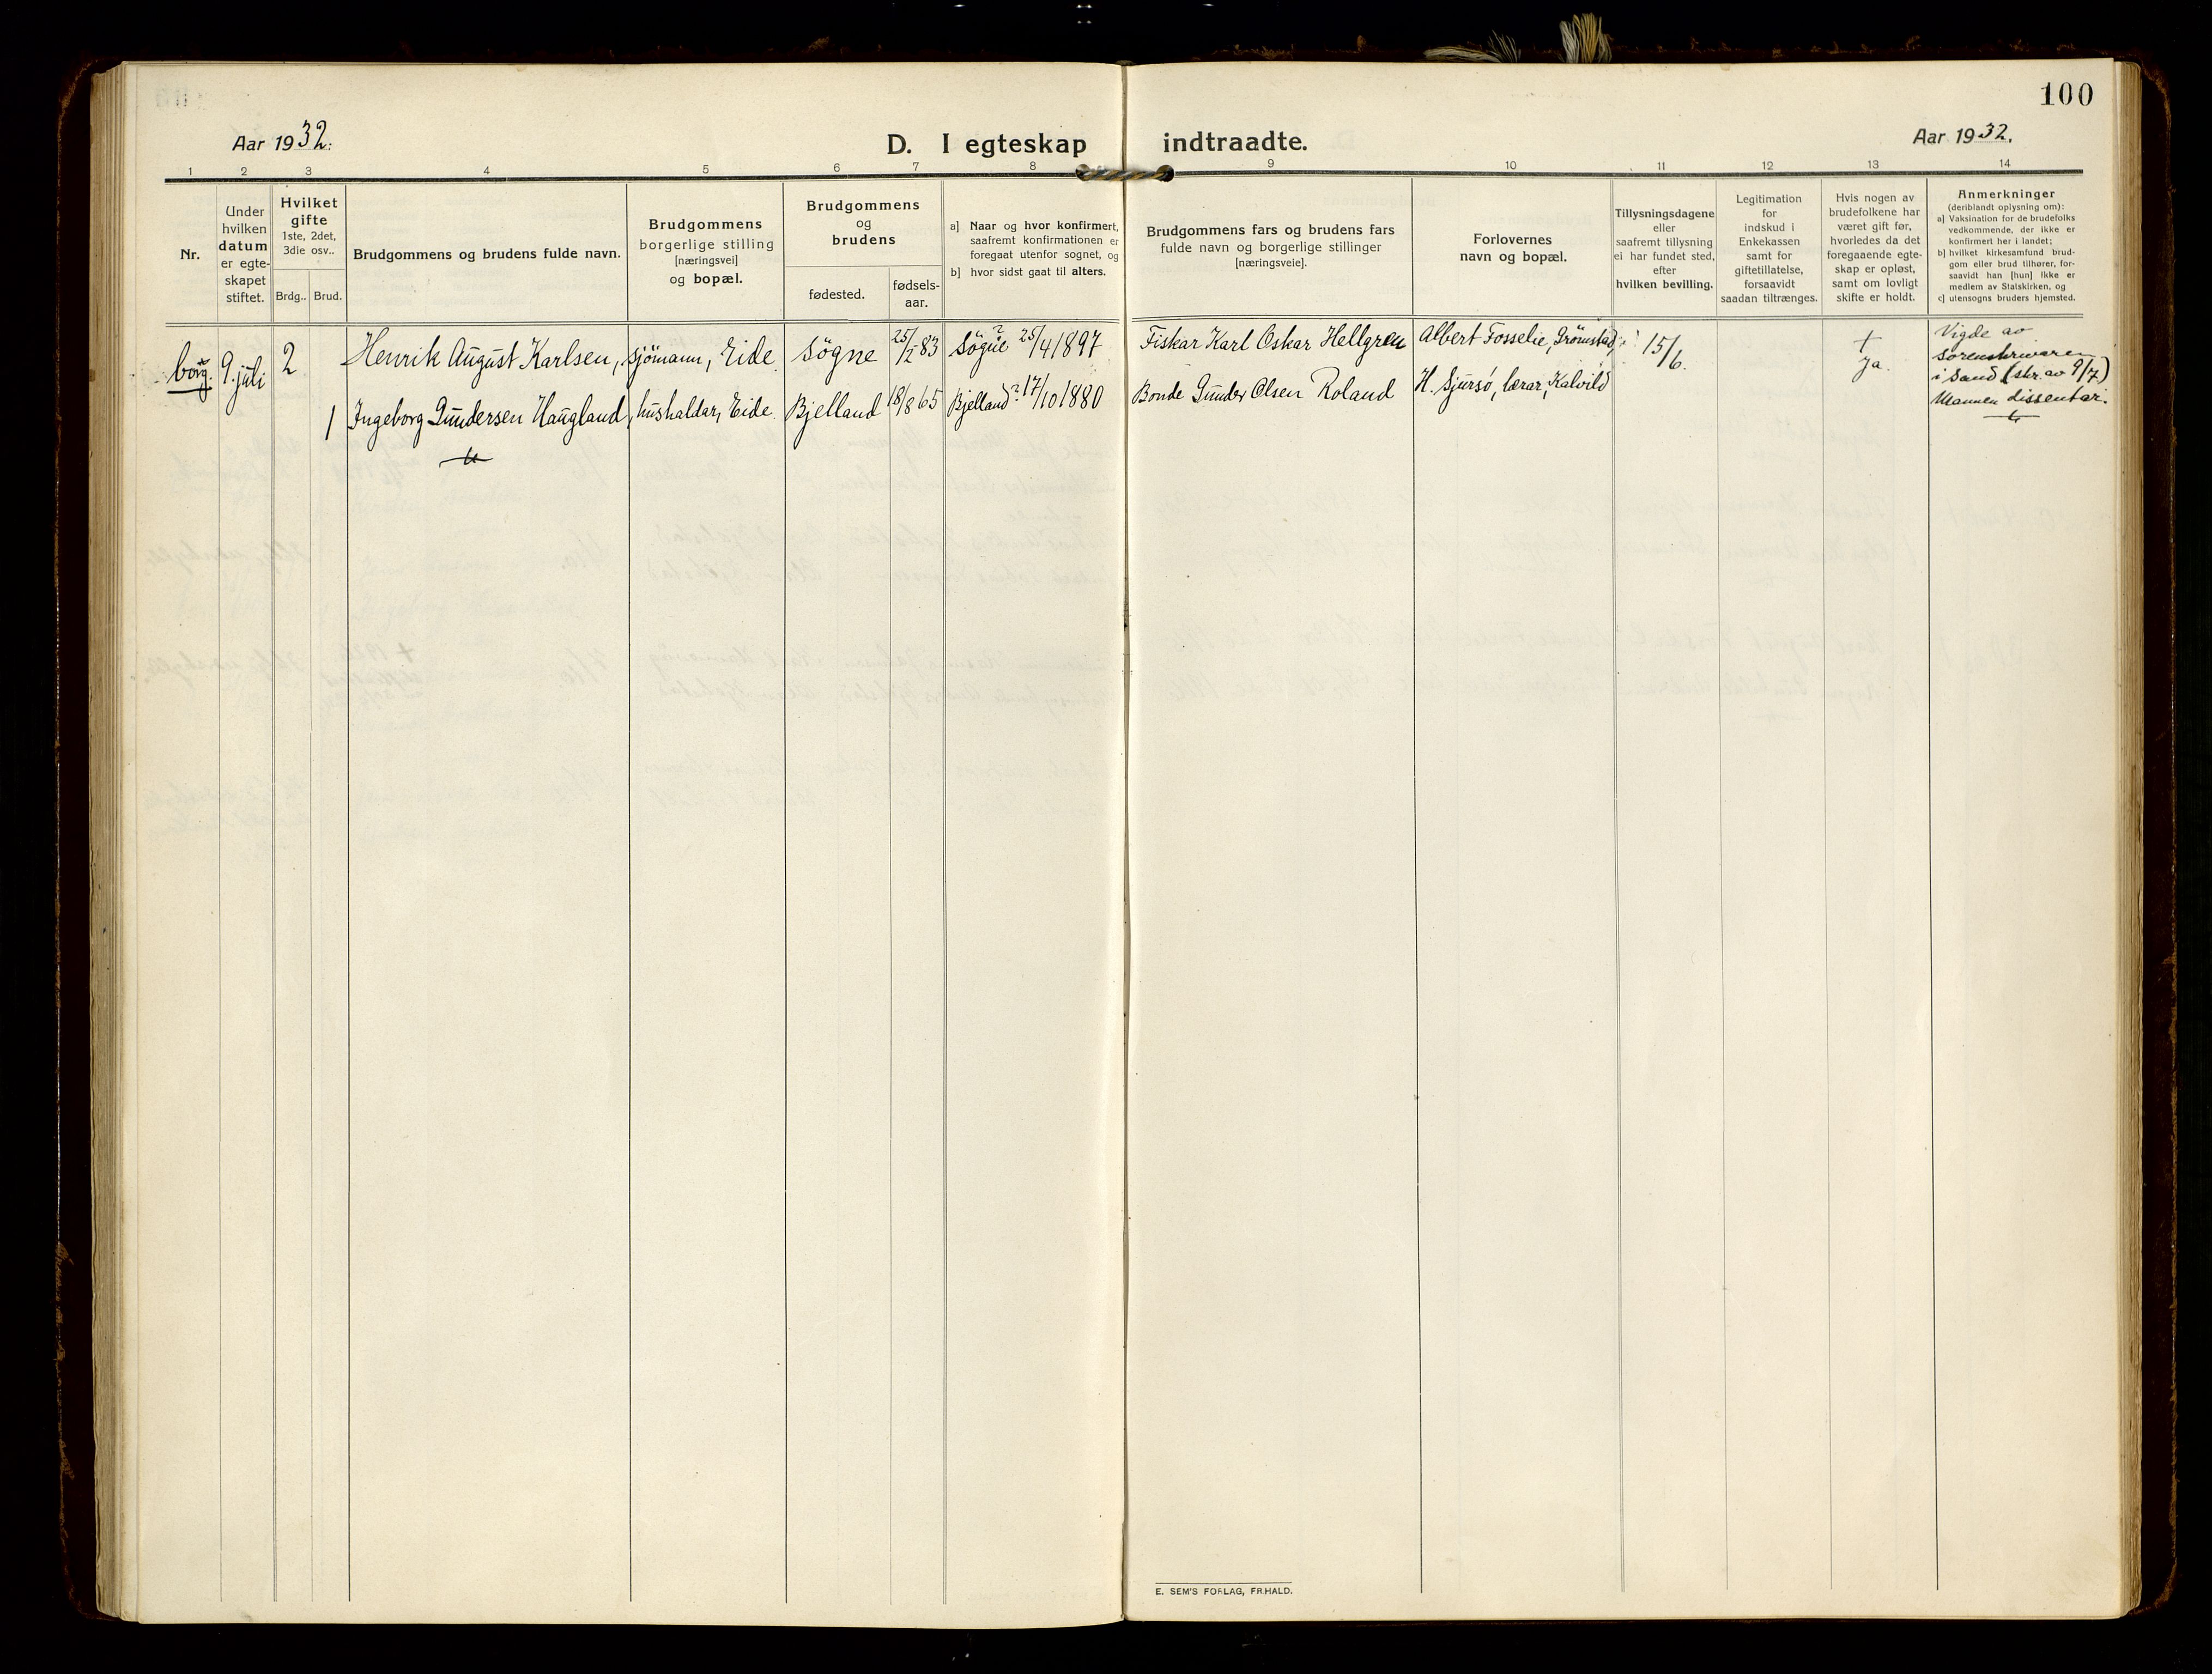 100
Aar 1932.
D. I egteskap indtraadte.
Aar 1932.
1 2 3 4 5 6 7 8 9 10 11 12 13 14
Nr.
Under
hvilken
datum
er egte-
skapet
stiftet.
Hvilket
gifte
1ste, 2det,
3die osv..
Brdg.. Brud.
Brudgommens og brudens fulde navn.
Brudgommens
borgerlige stilling
[næringsvei]
og bopæl.
Brudgommens
og
brudens
fødested.
fødsels-
aar.
a] Naar og hvor konfirmert,
saafremt konfirmationen er
foregaat utenfor sognet, og
b] hvor sidst gaat til alters.
Brudgommens fars og brudens fars
fulde navn og borgerlige stillinger
[næringsveie].
Forlovernes
navn og bopæl.
Tillysningsdagene
eller
saafremt tillysning
ei har fundet sted,
efter
hvilken bevilling.
Legitimation
for
indskud i
Enkekassen
samt for
giftetillatelse,
forsaavidt
saadan tiltrænges.
Hvis nogen av
brudefolkene har
været gift før,
hvorledes da det
foregaaende egte-
skap er opløst,
samt om lovligt
skifte er holdt.
Anmerkninger
(deriblandt oplysning om):
a] Vaksination for de brudefolks
vedkommende, der ikke er
konfirmert her i landet;
b] hvilket kirkesamfund brud-
gom eller brud tilhører, for-
saavidt han [hun] ikke er
medlem av Statskirken, og
c] utensogns bruders hjemsted.
borg. 9. juli 2 Henrik August Karlsen, sjömann, Eide. Søgne 25/2 83 Søgne ? 25/4 1897 Fiskar Karl Oskar Hellgren Albert Fosselie, Grömstad, 15/6. † Ja.
1 Ingeborg Gundersen Haugland, hushaldar, Eide. Bjelland 18/8 65 Bjelland ? 17/10 1880 Bonde Gunder Olsen Roland H. Sjursø, lærar, Kalvild
Vigde av
sorenskrivaren
i Sand (skr. av 9/7)
Mannen dissentar.
E. SEM'S FORLAG, FR.HALD.